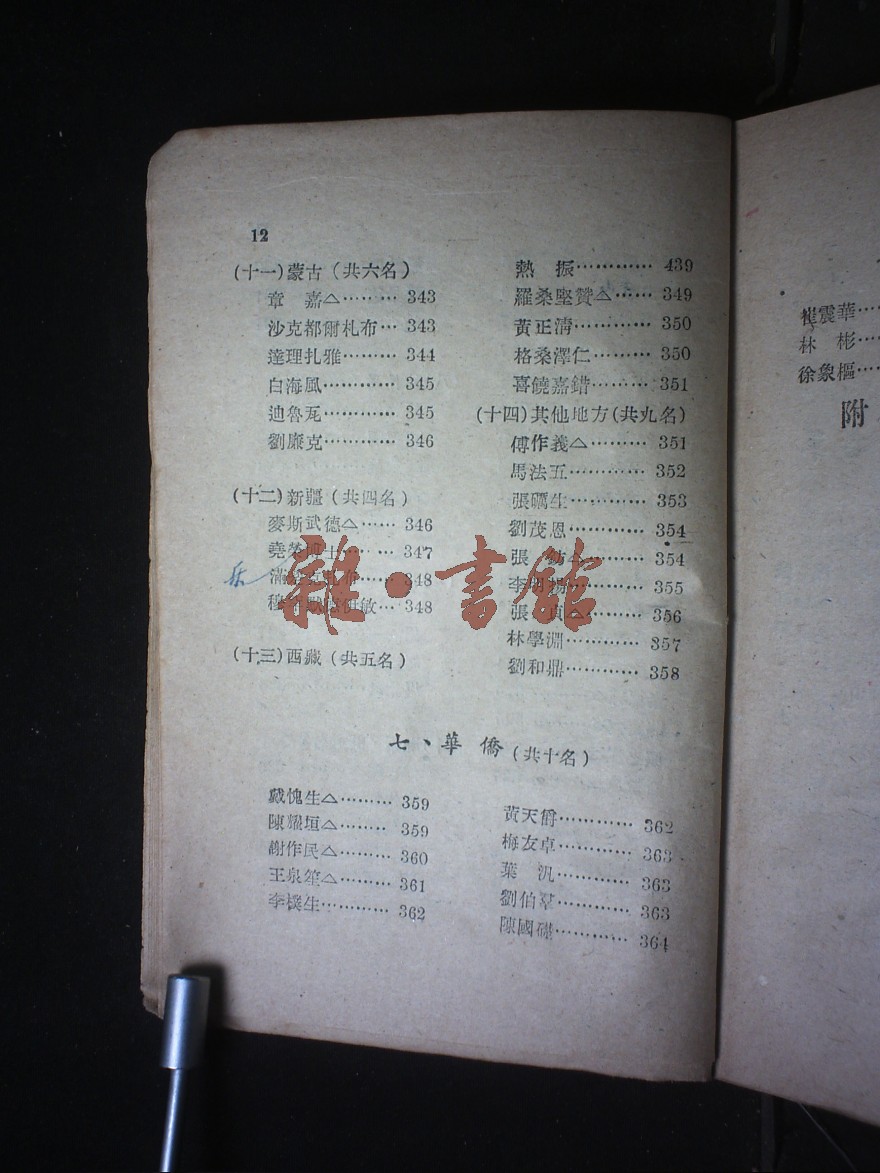 12
(十一)蒙古(共六名)
章 嘉△……… 343
沙克都爾札布… 343
達理扎雅……… 344
白海風………… 345
迪魯瓦………… 345
劉廉克………… 346
(十二)新疆(共四名)
麥斯武德△…… 346
堯樂博士……… 347
滿…… 348
乐
穆…敏… 348
(十三)西藏(共五名)
熱 振………… 439
羅桑堅贊△…… 349
黃正淸………… 350
格桑澤仁……… 350
喜饒嘉錯……… 351
(十四)其他地方(共九名)
傅作義△……… 351
馬法五………… 352
張礪生………… 353
劉茂恩………… 354
張 鈁△……… 354
李明揚……… 355
張 貞△……… 356
林學淵………… 357
劉和鼎………… 358
七、華 僑(共十名)
戴愧生△……… 359
陳耀垣△…… 359
謝作民△……… 360
王泉笙△……… 361
李樸生………… 362
黃天爵………… 362
梅友卓………… 363
葉 汎………… 363
劉伯羣………… 363
陳國礎………… 364
崔震華…
林 彬…
徐象樞…
附
雜·書館